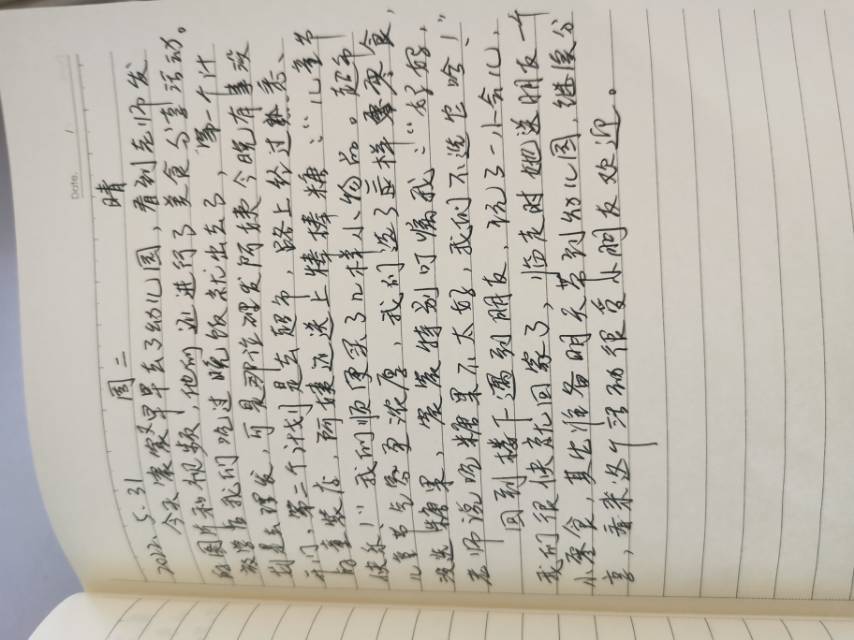 Date. /
2022.5.31 周二 晴
今天宸宸早早去了幼儿园，看到老师发
的图片和视频，他们还进行了美食分享活动。
放学后我们吃过晚饭就出去了，第一个计
划是去理发，可是那诠理发阿姨今晚有事没
开门，第二个计划是去超市，路上经过熟悉
的童装店，阿姨还送上棒棒糖：“儿童节
快乐！”我们顺便买了几样小物品。超市
儿童节气氛更浓厚，我们选了五样零食，
没选糖果，宸宸特别叮嘱我：“妈妈，
老师说吃糖果不太好，我们不选它哈！”
回到楼下遇到朋友，玩了一小会儿，
我们很快就回家了，临走时她送朋友一个
小零食，其它准备明天带到幼儿园，继续分
享，看来这个活动很受小朋友欢迎。